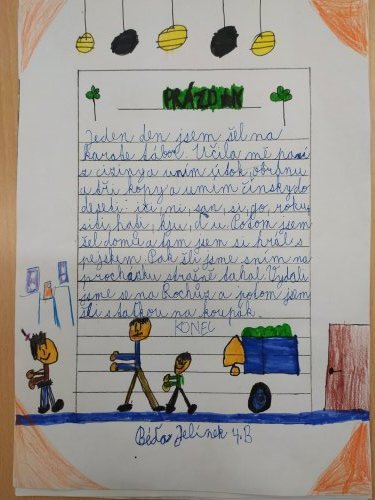 PRÁZDNY
Jeden den jsem šel na
karate tábor. Učila mě paní
z ciziny a umím útok, obranu
a tři kopy a umím čínsky do
deseti: iti, ni, san, si, go, roku,
siti, hati, kiu, ďu. Potom jsem
šel domů a tam jsem si hrál s
pejskem. Pak šli jsme s ním na
procházku strašně tahal. Vydali
jsme se na Rochůz a potom jsem
šli s taťkou na koupák.
KONEC
Béďa Jelínek 4.B